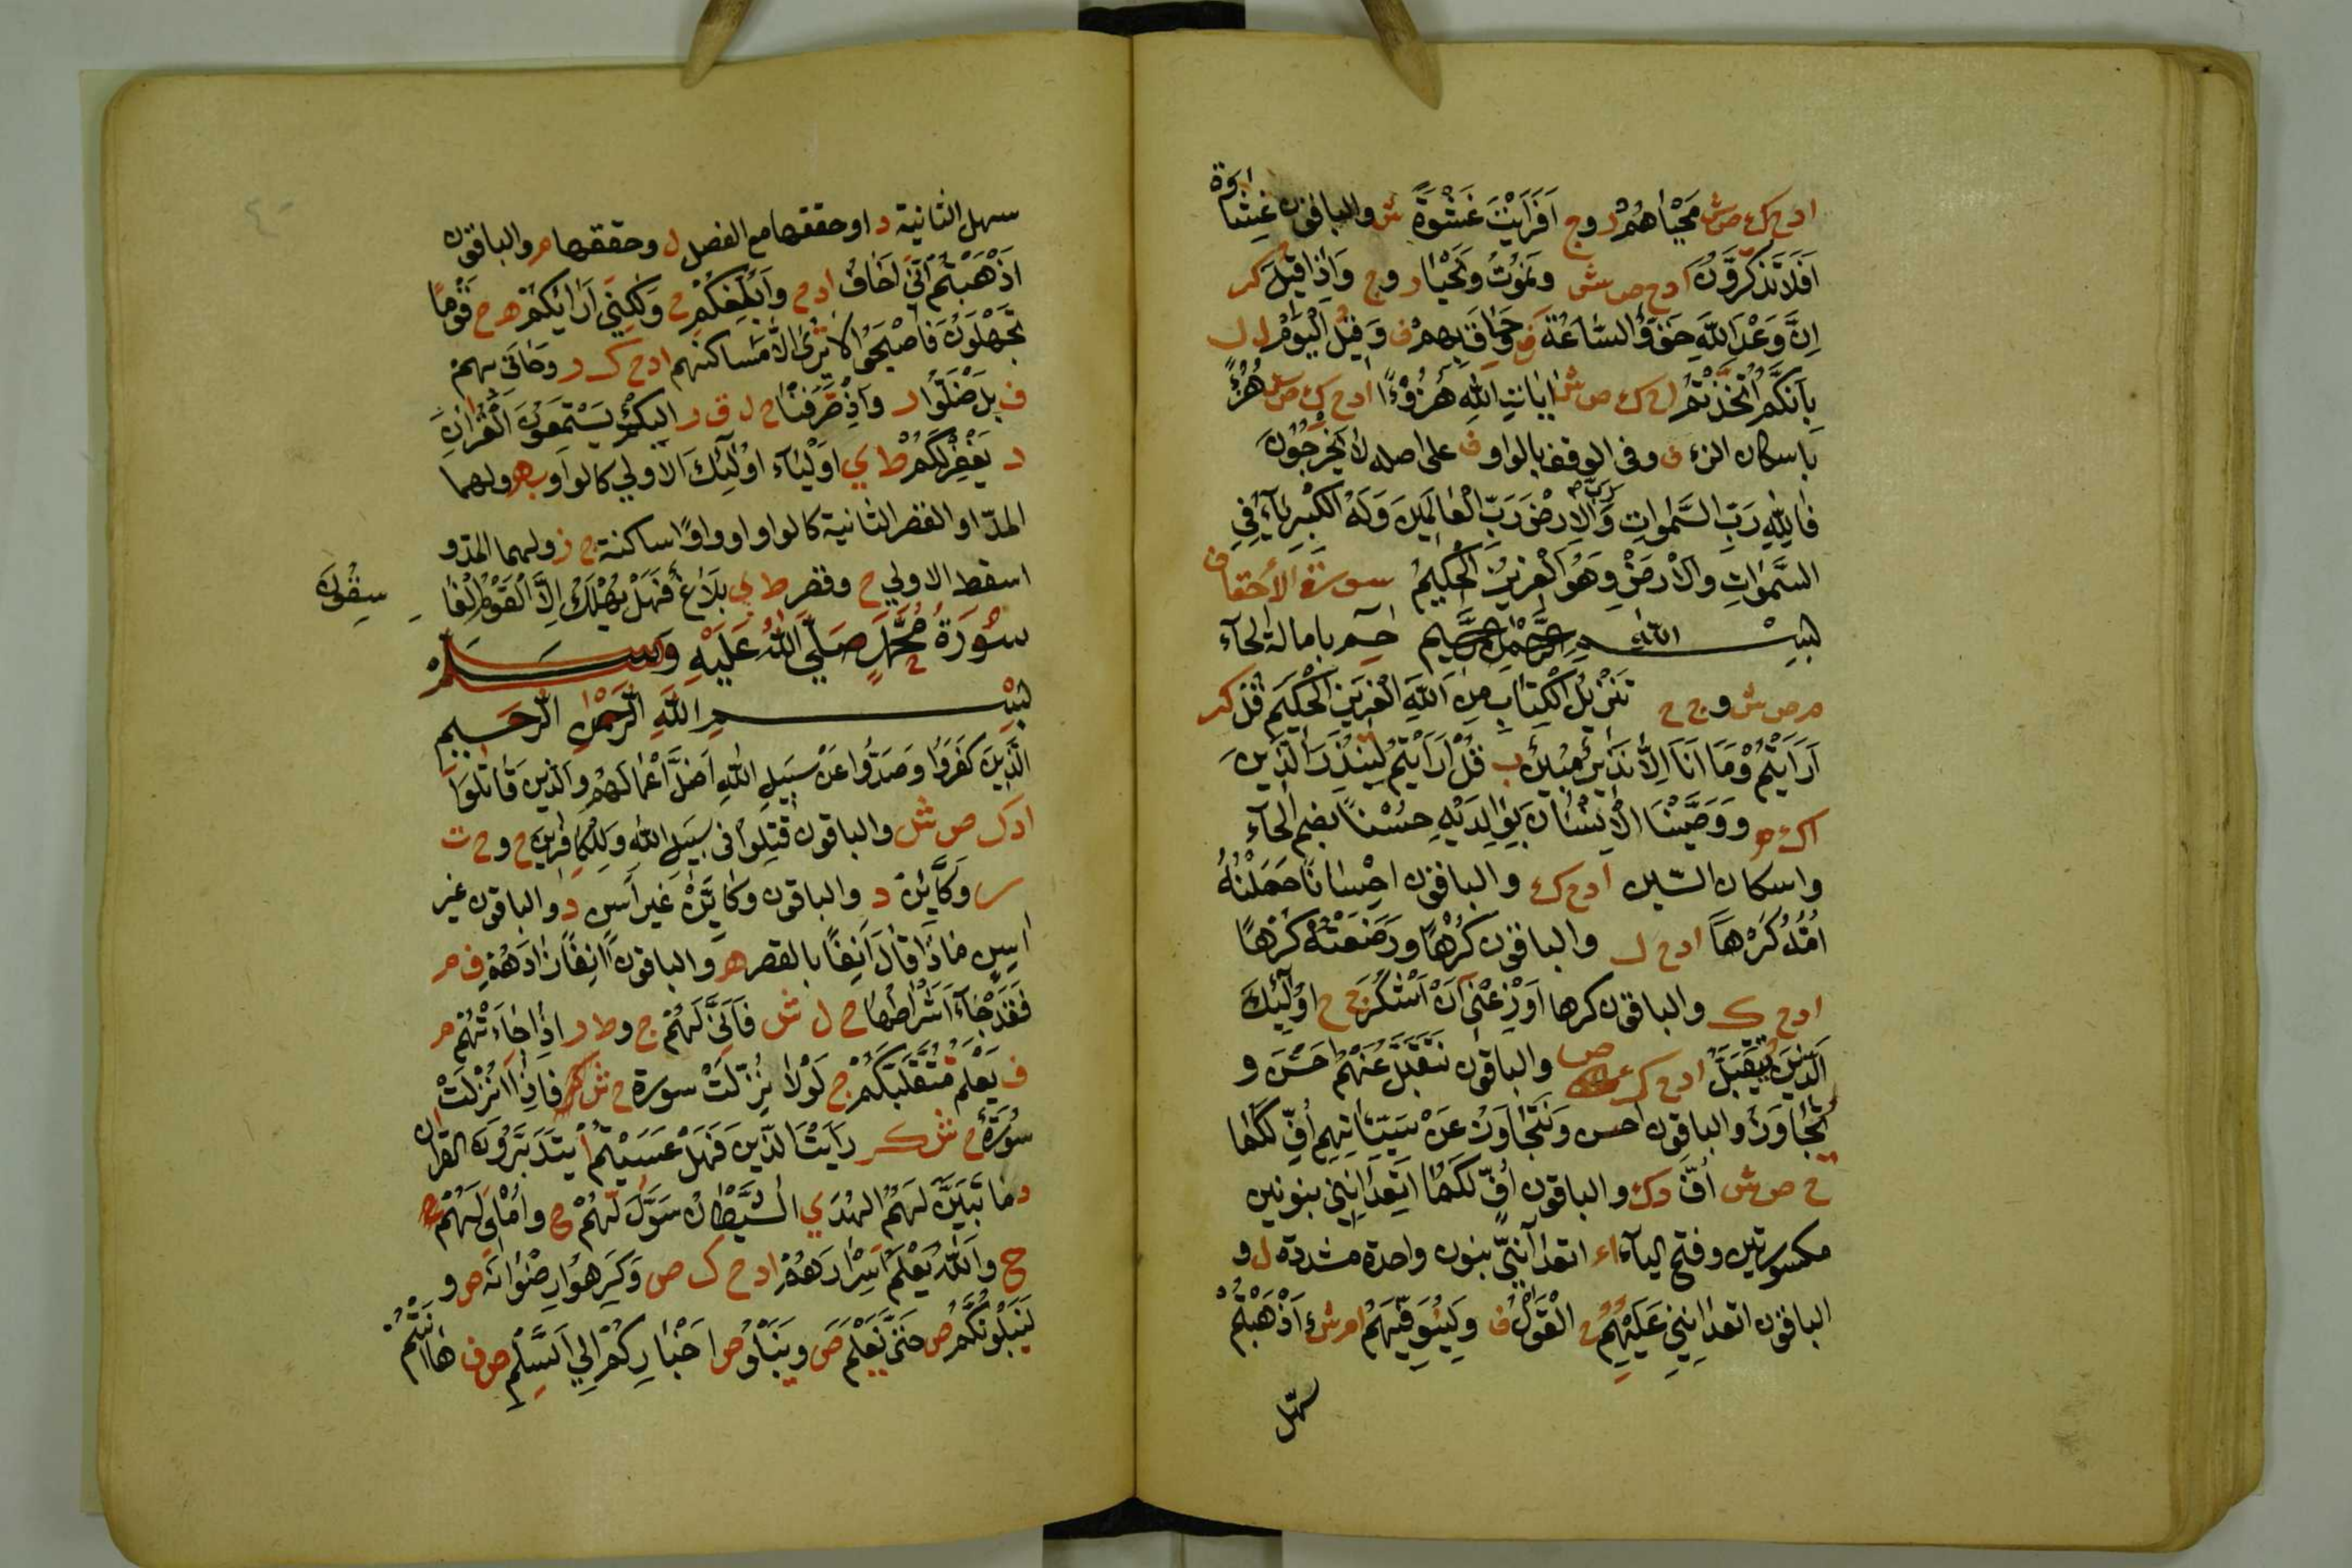 ادح ك ص ش مَحْيَاهُمْ ر و ج اَفَرَاَيْتَ غَشْوَةً ش والباقون غِشَاوَة
اَفَلَا تَذَكَّرُونَ ادح ص ش ونَمُوتُ وَنَحْيَا ر و ج وَاِذَا قِيْلَ كر
اِنَّ وَعْدَ اللّٰهِ حَقٌّ وَالسَّاعَةَ ف وَحَاقَ بِهِمْ ف وَقِيْلَ الْيَوْمَ ل ر
بِاَنَّكُمُ اتَّخَذْتُمْ اح ك ص ش اٰيَاتِ اللّٰهِ هُزُوًا ادح ك ص ش هُزْءً
باسكان الزء ف وفى الوقف بالواو ف على اصله لَا يَخْرُجُونَ
فَلِلّٰهِ رَبِّ السَّمٰوَاتِ وَالْاَرْضِ رَبِّ الْعَالَمِينَ وَلَهُ الْكِبْرِيَآءُ فِي
السَّمٰوَاتِ والْاَرْضِ وَهُوَ الْعَزِيزُ الْحَكِيمُ سورة الاحقاف
بسم الله الرحمن الرحيم حم باِمالة الحآء
م ص ش و ج ح تَنْزِيلُ الْكِتَابِ مِنَ اللّٰهِ الْعَزِيزِ الْحَكِيمِ قُلْ كر
اَرَاَيْتُمْ وَمَا اَنَا اِلَّا نَذِيْرٌ مُبِيْنٌ ب قُلْ اَرَاَيْتُمْ لِيُنْذِرَ الَّذِينَ
اك ه و وَوَصَّيْنَا الْاِنْسَانَ بِوَالِدَيْهِ حُسْنًا بضم الحآء
واسكان السّين ادح ك والباقون اِحْسَانًا حَمَلَتْهُ
اُمُّهُ كَرْهًا ادح ل والباقون كُرْهًا وَوَضَعَتْهُ كَرْهًا
ادح ك والباقون كرها اَوْزِعْنِي اَنْ اَشْكُرَ ج ح اُوْلٰٓئِكَ
الَّذِيْنَ يُتَقَبَّلُ ادح ك ص والباقون نَتَقَبَّلُ عَنْهُمْ اَحْسَنَ و
يُتَجَاوَزُ والباقون احسن وَنَتَجَاوَزُ عَنْ سَيِّئَاتِهِمْ اُفٍّ لَكُمَا
ح ص ش اُفَّ د ك والباقون اُفِّ لَكُمَا اَتَعِدَانِنِيَ بنونين
مكسورتين وفتح اليآء اء اتعدآنِّي بنون واحدة مشددة ل و
الباقون اتعدانِنِي عَلَيْهِمُ الْقَوْلُ ف وَلِيُوَفِّيَهُمْ ام ش ءَاَذْهَبْتُمْ
سهّل
سهل الثانية د او حققها مع الفصل ل وحققها م والباقون
اَذْهَبْتُمْ اَنِّي اَخَافُ ادح وَاُبْلِغُكُمْ ح وَلٰكِنِّي اَرَايكُمْ ه ح قَوْمًا
تَجْهَلُونَ فَاَصْبَحُوا لَا تَرٰى اِلَّا مَسَاكِنَهم ادح ك ر وَحَاقَ بهم
ف بَلْ ضَلُّوا ر وَاِذْ صَرَفْنَا ح ل ق ر اليكَ يَسْتَمِعُونَ الْقُرْاٰنَ
د يَغْفِرْ لَكُمْ ط ي اَوْلِيَآء اُوْلٰئِكَ الاولى كالواو ب ه ولهما
المدّ او القصر الثانية كالواو او واوًا ساكنة ج ز ولهما المدّ و
اسقط الاولي ح وقصر ط ي بَلَاغٌ فَهَلْ يُهْلَكُ اِلَّا الْقَوْمُ الْفَا
سِقُونَ
سُوْرَةُ مُحَمَّدٍ صَلَّي اللّٰهُ عَلَيْهِ وَسَلَّمْ
بسم اللّٰهِ الرَّحْمٰنِ الرَّحيم
الَّذِينَ كَفَرُوا وَصَدُّوا عَنْ سَبِيلِ اللّٰهِ اَضَلَّ اَعْمَالَهُمْ وَالَّذِينَ قَاتَلُوا
ادك ص ش والباقون قُتِلُوا فى سبيل اللّٰه وَلِلْكَافِرِينَ ح و ج ت
ر وَكَآئِنْ د والباقون وَكَاَيِّنْ غَيْر اَسِنٍ د والباقون غير
اٰسِنٍ مَاذَا قَالَ اَنِفًا بالقصر ه والباقون اٰنِفًا زَادَهُمْ ف م
فَقَدْ جَآءَ اَشْرَاطُهَا ح ل ش فَاَنّٰي لَهُمْ ج و ط ر اِذَا جَآءَتْهُمْ م
ف يَعْلَمُ مُتَقَلَّبَكُمْ ج لَوْلَا نُزِّلَتْ سورة ح ش كر فَاِذَآ اُنْزِلَتْ
سُوْرَةٌ ح ش كر رَاَيْتَ الَّذِينَ فَهَلْ عَسَيْتُمْ ا يَتَدَبَّرُونَ القران
د مَا تَبَيَّنَ لَهُمُ الْهُدَي الشَّيْطَانُ سَوَّلَ لَهُمْ ج وَاُمْلِيَ لَهُمْ
ح وَاللّٰهُ يَعْلَمُ اَسْرَارَهُمْ ادح ك ص وَكَرِهُوا رِضْوَانَهُ ص و
لَيَبْلُوَنَّكُمْ ص حَتّٰى يَعْلَمَ ص وَيَبْلُوَ ص اَخْبَارَكُمْ اِلَي السِّلْمِ ص ف هَاَنْتُمْ